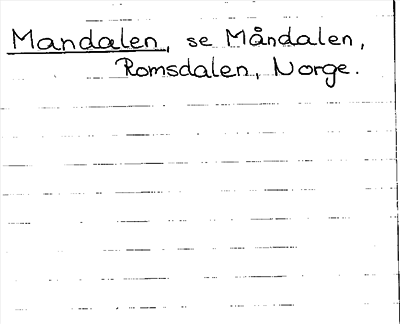 Mandalen, se Måndalen,
Romsdalen, Norge.